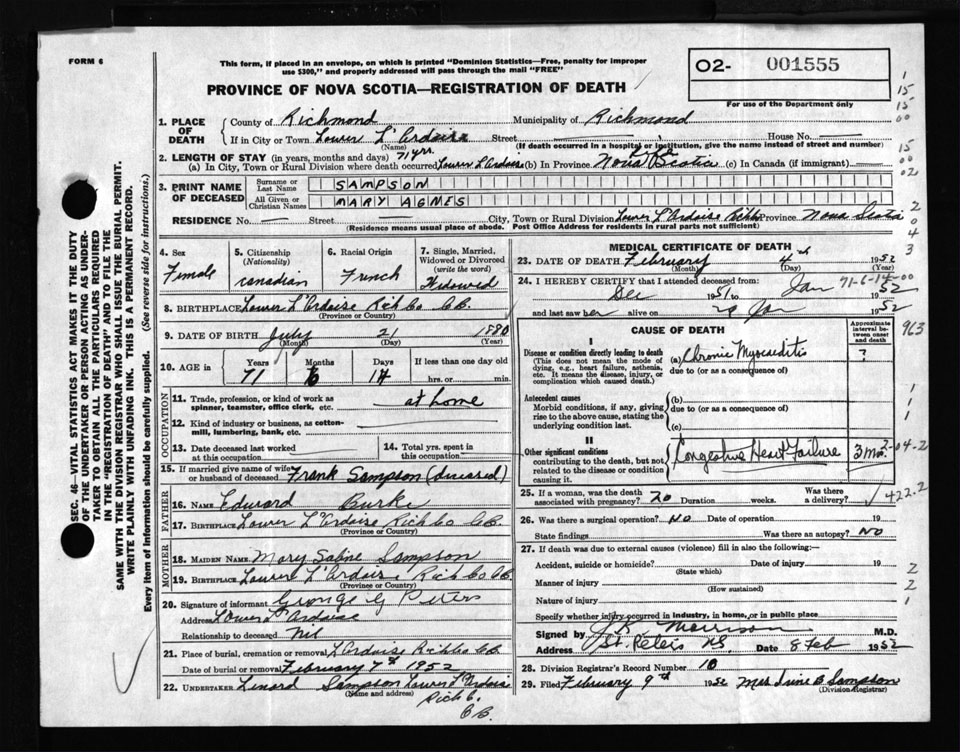 FORM 6
This form, if placed in an envelope, on which is printed "Dominion Statistics—Free, penalty for improper
use $300," and properly addressed will pass through the mail "FREE"
O2- 001555
For use of the Department only
PROVINCE OF NOVA SCOTIA—REGISTRATION OF DEATH
1. PLACE OF DEATH
County of Richmond Municipality of Richmond
If in City or Town Lower L'Ardoise Street House No.
(Name) (If death occurred in a hospital or institution, give the name instead of street and number)
2. LENGTH OF STAY (in years, months and days) 71 yrs. Life
(a) In City, Town or Rural Division where death occurred Lower L'Ardoise (b) In Province Nova Scotia (c) In Canada (if immigrant)
3. PRINT NAME OF DECEASED
Surname or Last Name SAMPSON
All Given or Christian Names MARY AGNES
RESIDENCE No. Street City, Town or Rural Division Lower L'Ardoise Rich Co Province Nova Scotia
(Residence means usual place of abode. Post Office Address for residents in rural parts not sufficient)
4. Sex Female
5. Citizenship (Nationality) Canadian
6. Racial Origin French
7. Single, Married, Widowed or Divorced (write the word) Widowed
8. BIRTHPLACE Lower L'Ardoise Rich Co C.B.
(Province or Country)
9. DATE OF BIRTH July 21 1880
(Month) (Day) (Year)
10. AGE in Years 71 Months 6 Days 14 If less than one day old hrs. or min.
OCCUPATION
11. Trade, profession, or kind of work as spinner, teamster, office clerk, etc. at home
12. Kind of industry or business, as cotton-mill, lumbering, bank, etc.
13. Date deceased last worked at this occupation
14. Total yrs. spent in this occupation
15. If married give name of wife or husband of deceased Frank Sampson (deceased)
FATHER
16. NAME Edward Burke
17. BIRTHPLACE Lower L'Ardoise Rich Co C.B.
(Province or Country)
MOTHER
18. MAIDEN NAME Mary Sabine Sampson
19. BIRTHPLACE Lower L'Ardoise Rich Co C.B.
(Province or Country)
20. Signature of informant George G Peters
Address Lower L'Ardoise
Relationship to deceased Nil
21. Place of burial, cremation or removal L'Ardoise Rich Co C.B.
Date of burial or removal February 7th 1952
22. UNDERTAKER Linard Sampson Lower L'Ardoise
(Name and address) Rich C.
C B.
MEDICAL CERTIFICATE OF DEATH
23. DATE OF DEATH February 4th 1952
(Month) (Day) (Year)
71-6-14-00
24. I HEREBY CERTIFY that I attended deceased from:
Dec 1951 to Jan 1952
and last saw her alive on Jan 1952
CAUSE OF DEATH
Approximate interval between onset and death
I
Disease or condition directly leading to death
(This does not mean the mode of dying, e.g., heart failure, asthenia, etc. It means the disease, injury, or complication which caused death.)
(a) Chronic Myocarditis ?
due to (or as a consequence of)
Antecedent causes
Morbid conditions, if any, giving rise to the above cause, stating the underlying condition last.
(b)
due to (or as a consequence of)
(c)
II
Other significant conditions
contributing to the death, but not related to the disease or condition causing it.
Congestive Heart Failure 3 Mo.
25. If a woman, was the death associated with pregnancy? No Duration weeks. Was there a delivery?
422.2
26. Was there a surgical operation? No Date of operation 19
State findings Was there an autopsy? No
27. If death was due to external causes (violence) fill in also the following:—
Accident, suicide or homicide? Date of injury 19
(State which)
Manner of injury
(How sustained)
Nature of injury
Specify whether injury occurred in industry, in home, or in public place
Signed by Morrison M.D.
Address St. Peters N.S. Date 8 Feb 1952
28. Division Registrar's Record Number 10
29. Filed February 9th 1952 Mrs Irene B Sampson
(Division Registrar)
SEC. 46 — VITAL STATISTICS ACT MAKES IT THE DUTY
OF THE UNDERTAKER OR PERSON ACTING AS UNDER-
TAKER TO OBTAIN ALL THE PARTICULARS REQUIRED
IN THE "REGISTRATION OF DEATH" AND TO FILE THE
SAME WITH THE DIVISION REGISTRAR WHO SHALL ISSUE THE BURIAL PERMIT.
WRITE PLAINLY WITH UNFADING INK. THIS IS A PERMANENT RECORD.
Every item of Information should be carefully supplied. (See reverse side for instructions.)
1
15
15
00
15
00
02
2
0
4
3
963
1
1
1
2
2
1